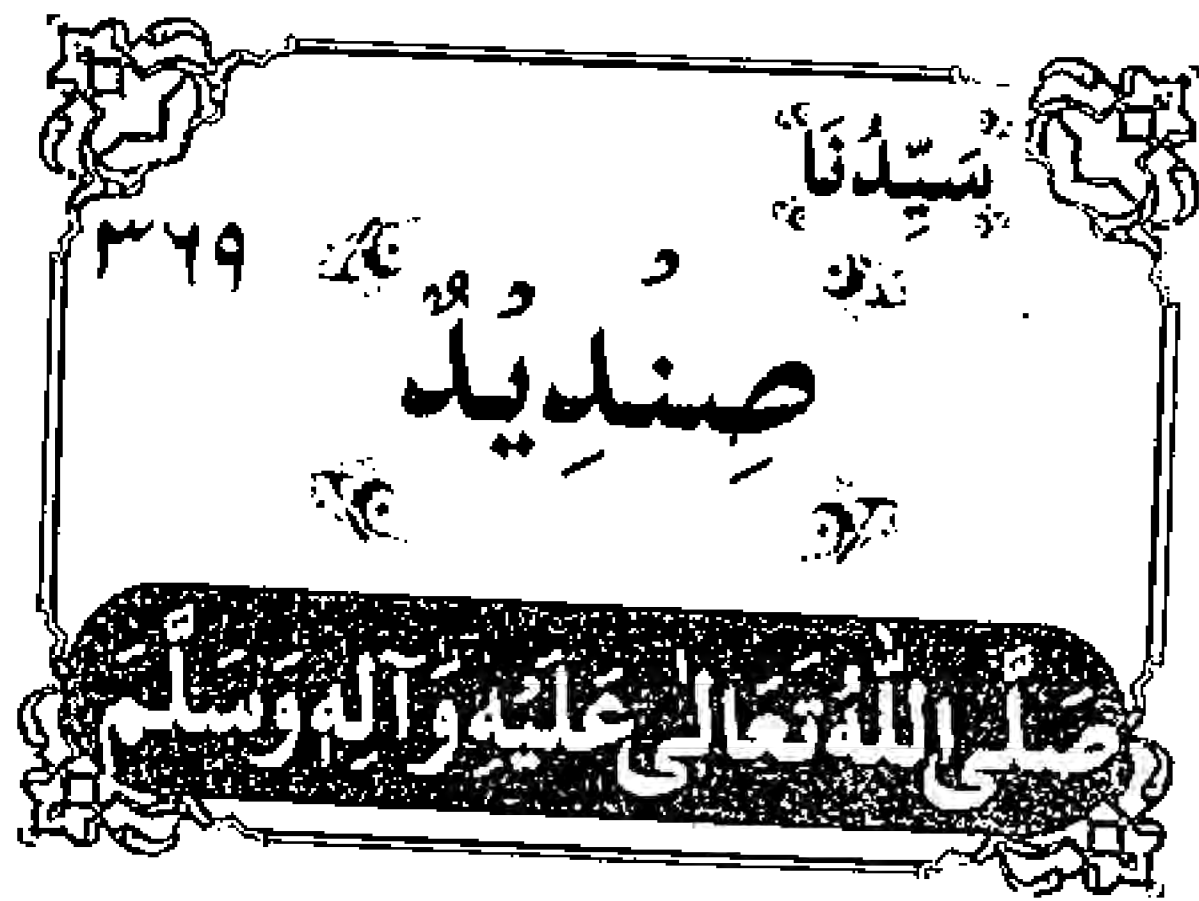 سَيِّدُنَا
٣٦٩
صِنْدِيْدٌ
صَلَّى اللّٰهُ تَعَالٰى عَلَيْهِ وَآلِهٖ وَسَلَّمَ